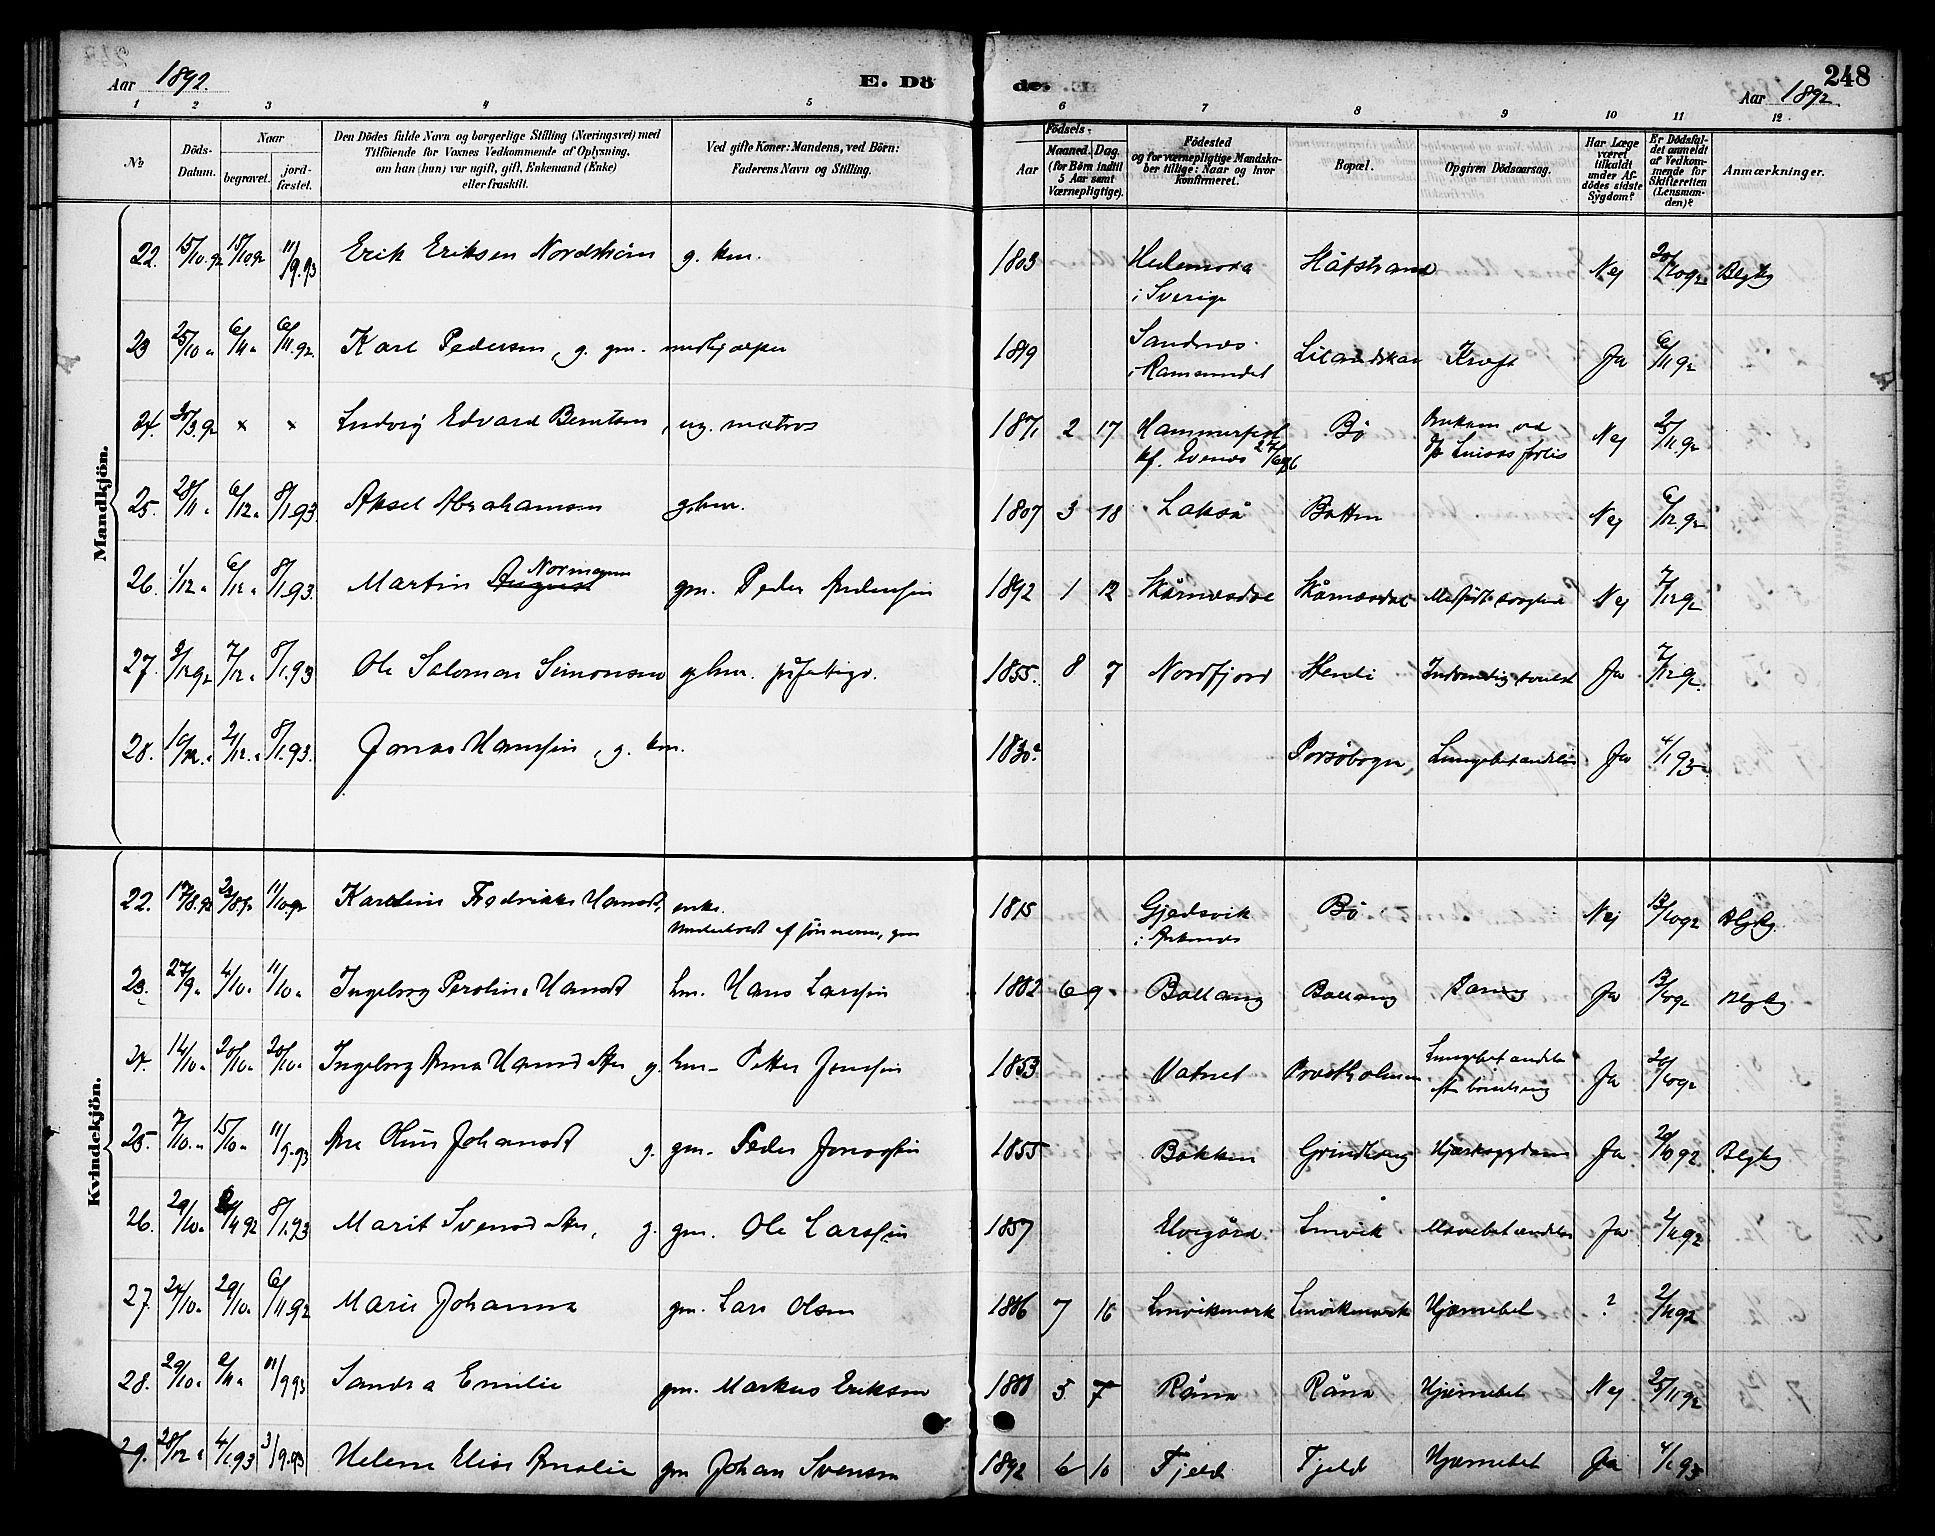 248
Aar 1892.
E. Dö
de.
Aar 1892
1 2 3 4 5 6 7 8 9 10 11 12
№
Döds-Datum.
Naar
begravet.
jordfæstet.
Den Dödes fulde Navn og borgerlige Stilling (Næringsvei) med Tilföiende for Voxnes Vedkommende af Oplysning, om han (hun) var ugift, gift, Enkemand (Enke) eller fraskilt.
Ved gifte Koner: Mandens, ved Börn: Faderens Navn og Stilling.
Födsels-
Aar
Maaned. Dag.
(for Börn indtil 5 Aar samt Værnepligtige).
Födested og for værnepligtige Mandskaber tillige: Naar og hvor Konfirmeret.
Bopæl.
Opgiven Dödsaarsag.
Har Læge været tilkaldt under Afdödes sidste Sygdom?
Er Dödsfaldet anmeldt af Vedkommende for Skifteretten (Lensmanden)?
Anmærkninger.
Mandkjön.
22. 15/10.92 15/10 92 11/9.93 Erik Eriksen Nordstrøm g. km. 1803 Hedemora i Sverige Håfstrand Nej 20/10 92 Blgby
23 25/10 " 6/11 " 6/11.92. Karl Pedersen, g. gm. medhjælper 1819 Sandnes i Ramsundet Lilandskar Kræft Ja 6/11 92
24. 31/3.92 × × Ludvig Edvard Berntsen, ug. matros 1871 2 17 Hammerfest kf. Evenes Bø Omkom ved Nej 25/11.92
25. 28/11 " 6/12 " 8/1.93 Aksel Abrahamsen g. km. 1807 3 18 Lakså Botten Nej 6/12.92
26. 1/12 " 6/12 " 8/1.93. Martin August Normann gm. Peder Andersen 1892 1 12 Skårnesdal Skårnesdal Medfødt svaghed Nej 7/12 92
27. 3/12 92 7/12 " 8/1.93 Ole Salomon Simonsen g. hm. 1855. 8 7 Nordfjord Indvendig svulst Ja 7/12 92.
28. 10/12. " 21/12. " 8/1.93. Jonas Hansen, g. km. 1830? Porsøbogen, Lungebetændelse Ja 4/1 93
Kvindekjön.
22. 17/8.92 23/8 92 11/10 92 Karoline Fredrikke Hansdt, enke. Underholdt af sønnerne, gm 1815 Gjedsvik i Ankenes Bø Nej 13/10 92 Blgby
23. 27/9. " 4/10. " 11/10. " Ingeborg Peroline Hansdt hm. Hans Larsen 1882 6 9 Ballang Ballang Ja 13/10 92 Blgby
24. 14/10 " 20/10 " 20/10 " Ingeborg Anna Hansdatter g. hm. Petter Jensen 1853 Vatnet Prestholmen Lungebetændelse eft. Ja 20/10 92
25. 7/10. " 15/10 " 11/9.93 Ane Oline Johansdt g. gm. Peder Jonassen 1855 Bakken Grindhaug Hjertesygdom Ja 20/10 92 Blgby
26. 29/10 " 2/11 92 8/1.93 Marit Svensdatter, g. gm. Ole Larssen 1857 Elvegård Lenvik Mavebetændelse Ja 2/11.92
27. 24/10. " 29/10. " 6/11 92 Marie Johanna gm. Lars Olsen 1886 7 16 Lenvikmark Lenvikmark Hjernebet ? 2/11 92
28. 29/10 " 2/11 " 11/9 93 Sandra Emilie gm. Markus Eriksen 1888 5 7 Råna Råna Hjernebet Nej 25/11 92
29. 28/12 " 4/1 93 3/9.93 Helene Elise Amalie gm Johan Svensen 1892 6 10 Fjeld Fjeld Hjernebet Ja 4/1 93